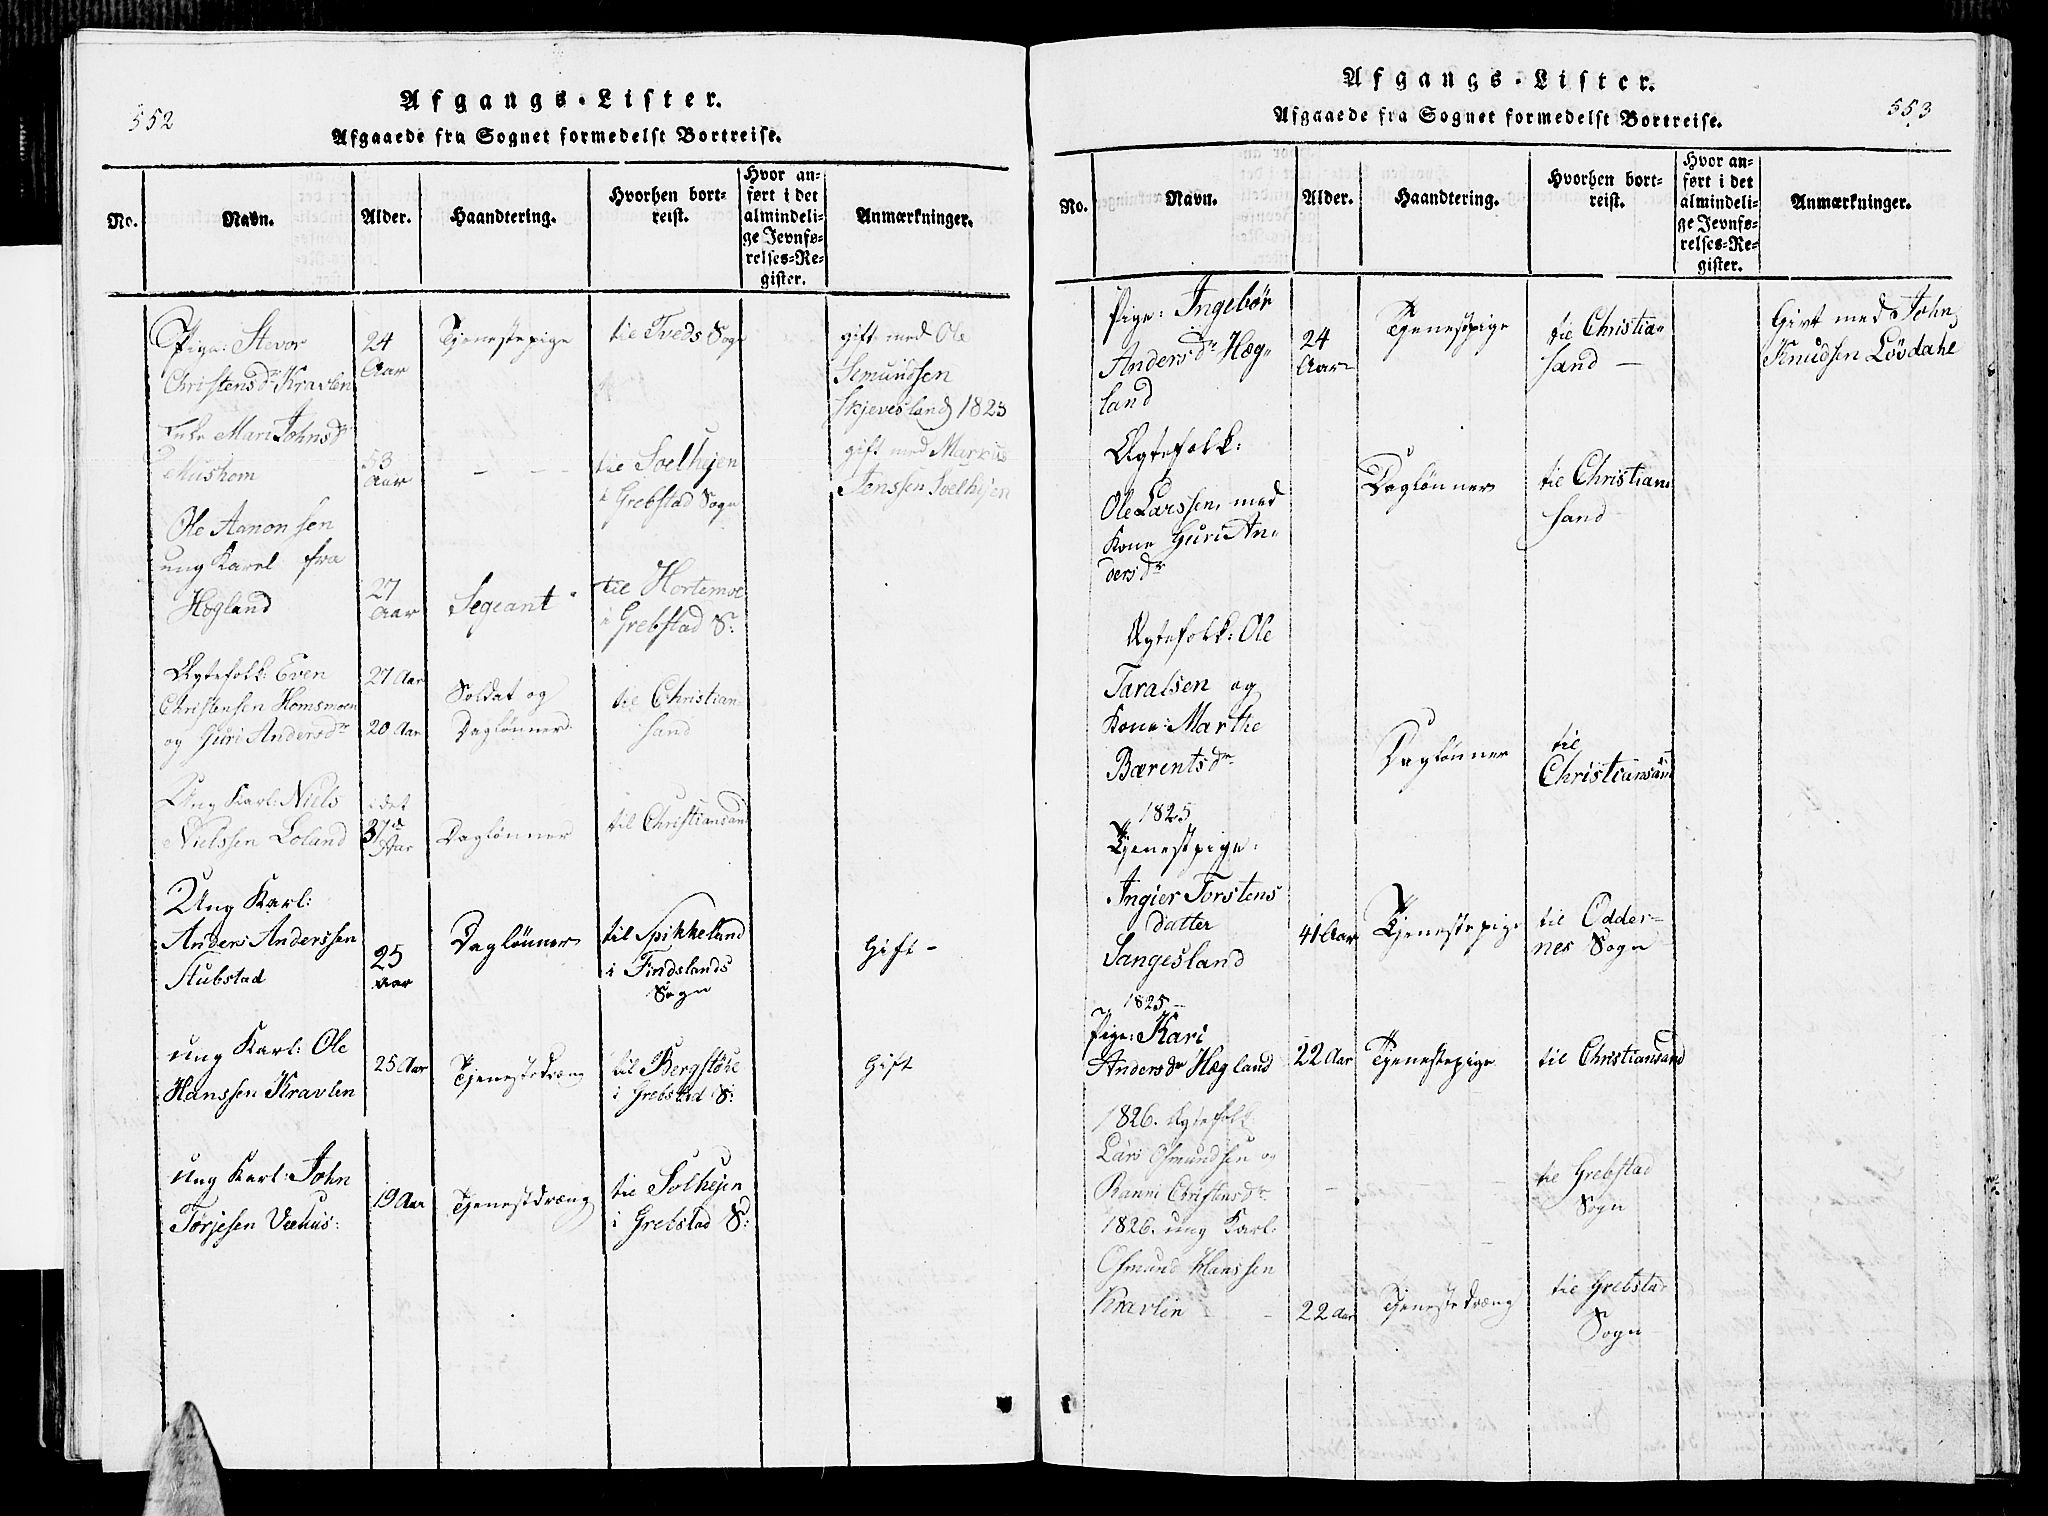 552
Afgangs-Lister.
Afgaaede fra Sognet formedelst Bortreise.
No.
Navn.
Alder.
Haandtering.
Hvorhen bort-
reist.
Hvor an-
ført i det
almindeli-
ge Jevnfø-
relses-Re-
gister.
Anmærkninger.
Pige: Stevor
Christensdr Kravlen
24
Aar
Tjenestepige
til Tveds Sogn
gift med Ole
Semundsen
Skjevesland 1823
Enke Mari Johnsdr
Mushom
53
Aar
til Soelhejen
i Grebstad Sogn
gift med Markus
Jenssen Soelhejen
Ole Aanonsen
ung Karel fra
Hægland
27
Aar
Segeant
til Hortemoe
i Grebstad S:
Ægtefolk: Even
Christensen Homsmoen
og Guri Andersdr
27 Aar
20 Aar
Soldat og
Daglønner
til Christian
sand
Ung Karl: Niels
Nielssen Loland
i det
37de
Aar
Daglønner
til Christiansand
Ung Karl:
Anders Anderssen
Stubstad
25
Aar
Daglønner
til Spikkeland
i Findslands
Sogn
Gift -
ung Karl: Ole
Hanssen Kravlen
25 Aar
Tjenestedræng
til Bergstøke
i Grebstad S:
Gift
ung Karl: John
Tørjesen Vehus:
19 Aar
Tjenestdræng
til Solhejen
i Grebstad S:
553
Afgangs-Lister.
Afgaaede fra Sognet formedelst Bortreise.
No.
Navn.
Alder.
Haandtering.
Hvorhen bort-
reist.
Hvor an-
ført i det
almindeli-
ge Jevnfø-
relses-Re-
gister.
Anmærkninger.
Pige: Ingebør
Andersdr Hæg-
land
24
Aar
Tjenestpige
til Christian
sand
Givt med John
Knudsen Løvdahl
Ægtefolk:
Ole Larssen, med
Kone Guri An-
dersdr
Daglønner
til Christian
sand
Ægtefolk: Ole
Taralsen og
Kone: Marthe
Bærentsdr
Daglønner
til
Christiansand
1825
Tjenestpige:
Ingier Torstens
datter
Sangesland
41 Aar
Tjenestepige
til Odder-
nes Sogn
1825
Pige: Kari
Andersdr Hægland
22 Aar
Tjenestepige
til Christiansand
1826. Ægtefolk
Lars Osmundsen og
Ranni Christensdr
til Grebstad
Sogn
1826. ung Karl:
Osmund Hanssen
Kravlen
22 Aar
Tjenestedræng
til Grebstad
Sogn